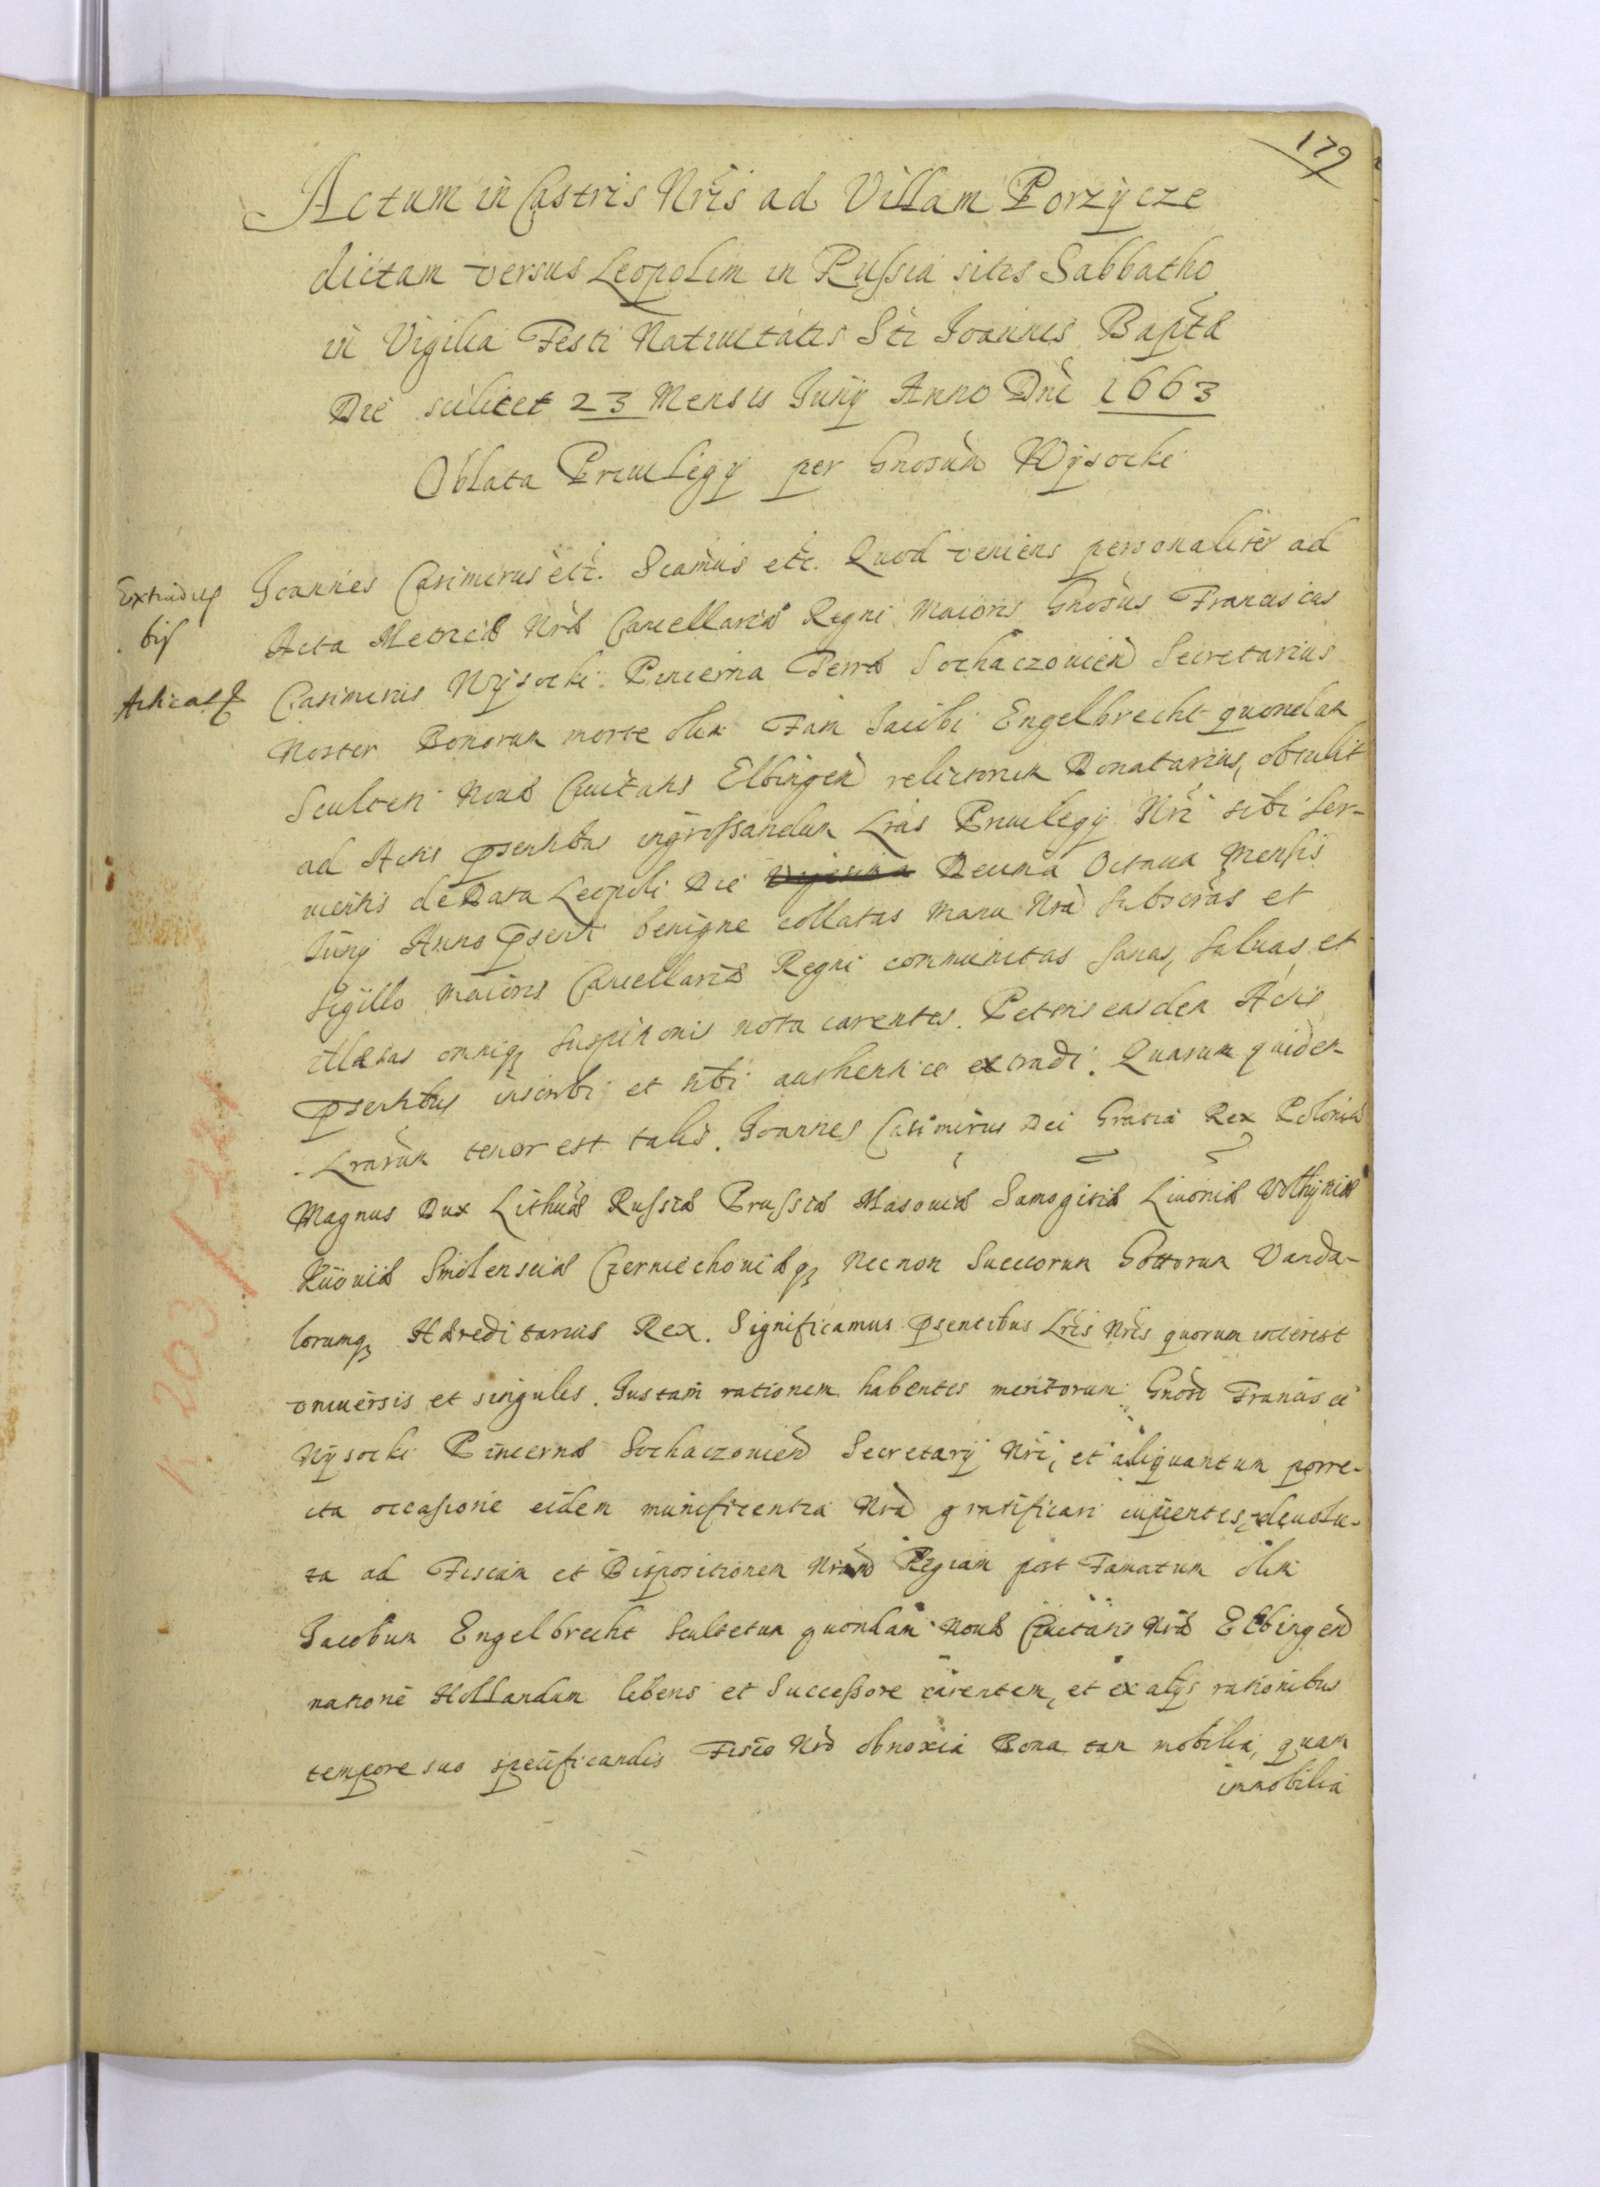 179
Actum in Castris Nris ad Villam Porzycze
dictam versus Leopolim in Russia sitis Sabbatho
in Vigilia Festi Natiuitatis Sti Joannis Baptæ
Die scilicet 23 Mensis Junÿ Anno Dni 1663
Oblata Priuilegÿ per Gnosum Wÿsocki
Joannes Casimirus etc. Scamus etc. Quod veniens personaliter ad
Acta Metricæ Nræ Cancellariæ Regni Maioris Gnosus Franciscus
Casimirus Wÿsocki Pincerna Terræ Sochaczouien Secretarius
Noster Bonorum morte olim Fam Jacobi Engelbrecht quondam
Sculteti Nouæ Ciuitatis Elbingen relictorum Donatarius, obtulit
ad Actis pñtibus ingrossandum Lras Priuilegÿ Nri sibi ser-
uientis de Data Leopoli Die Decima Octaua Mensis
Junÿ Anno pñti benigne collatas manu Nra subscras et
sigillo maioris Cancellariæ Regni communitas sanas, saluas et
illæsas omniq suspitionis nota carentes. Petens easdem Actis
pñtibus inscribi et sibi authentice extradi. Quarum quidem
Lrarum tenor est talis. Joannes Casimirus Dei Gratia Rex Poloniæ
Magnus Dux Lithuæ Russiæ Prussiæ Masouiæ Samogitiæ Liuoniæ Volhÿniæ
Kiiouiæ Smolensciæ Czerniechouiæq Necnon Suecorum Gottorum Vanda-
lorumq Hæreditarius Rex. Significamus psentibus Lris Nris quorum interest
vniuersis et singulis. Justam rationem habentes meritorum Gnosi Francisci
Wÿsocki Pincernæ Sochaczouien Secretarÿ Nri, et aliquantum porre-
cta occasione eidem munificentia Nra gratificari cupientes, deuolu-
ta ad Fiscum et Dispositionem Nram Regiam post Famatum olim
Jacobum Engelbrecht Scultetum quondam Nouæ Ciuitatis Nræ Elbingen
natione Hollandum lebens et Successore carentem, et ex alÿs rationibus
tempore suo specificandis Fisco Nro obnoxia Bona tam mobilia, quam
immobilia
Extraditus
bis